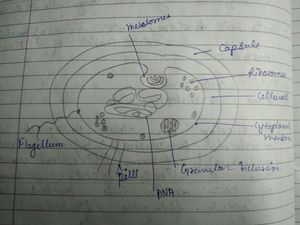 Mesosomes
Capsule
Ribosomes
Cellwall
Cytoplasmi
membra
Flagellum
pilli
Granular inclussion
DNA